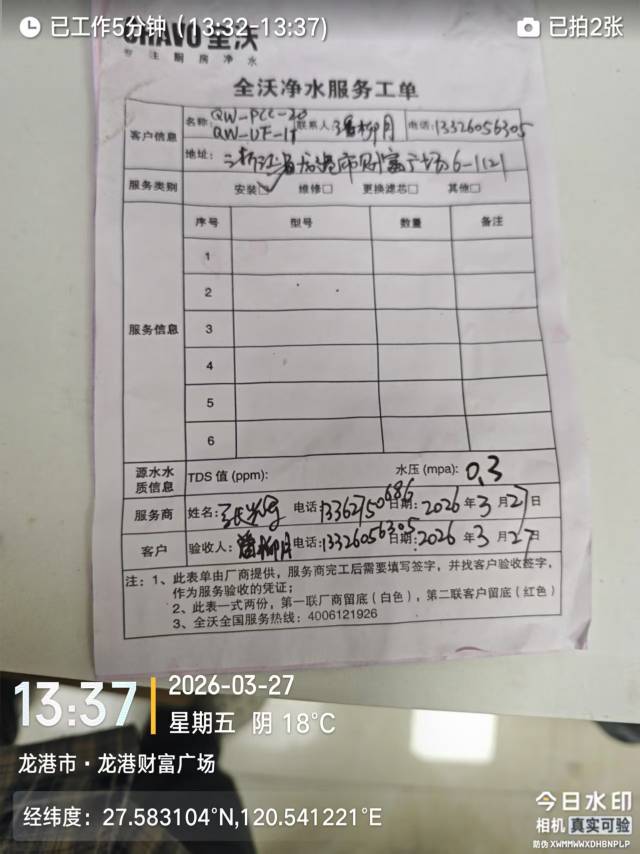 已工作5分钟 (13:32-13:37)
已拍2张
CHAVO 全沃
专注厨房净水
全沃净水服务工单
客户信息 名称: QW-PCC-20 联系人: 潘柳月 电话: 13326056305
QW-UF-1T
地址: 浙江省龙港市财富广场6-1121
服务类别 安装☑ 维修□ 更换滤芯□ 其他□
服务信息 序号 型号 数量 备注
1
2
3
4
5
6
源水水质信息 TDS 值 (ppm): 水压 (mpa): 0.3
服务商 姓名: 电话: 13362750686 日期: 2026 年 3 月 27 日
客户 验收人: 潘柳月 电话: 13326056305 日期: 2026 年 3 月 27 日
注: 1、此表单由厂商提供，服务商完工后需要填写签字，并找客户验收签字，
作为服务验收的凭证；
2、此表一式两份，第一联厂商留底（白色），第二联客户留底（红色）
3、全沃全国服务热线：4006121926
13:37
2026-03-27
星期五 阴 18°C
龙港市·龙港财富广场
经纬度: 27.583104°N,120.541221°E
今日水印
相机 真实可验
防伪 XWMMWWXDHBNPLP